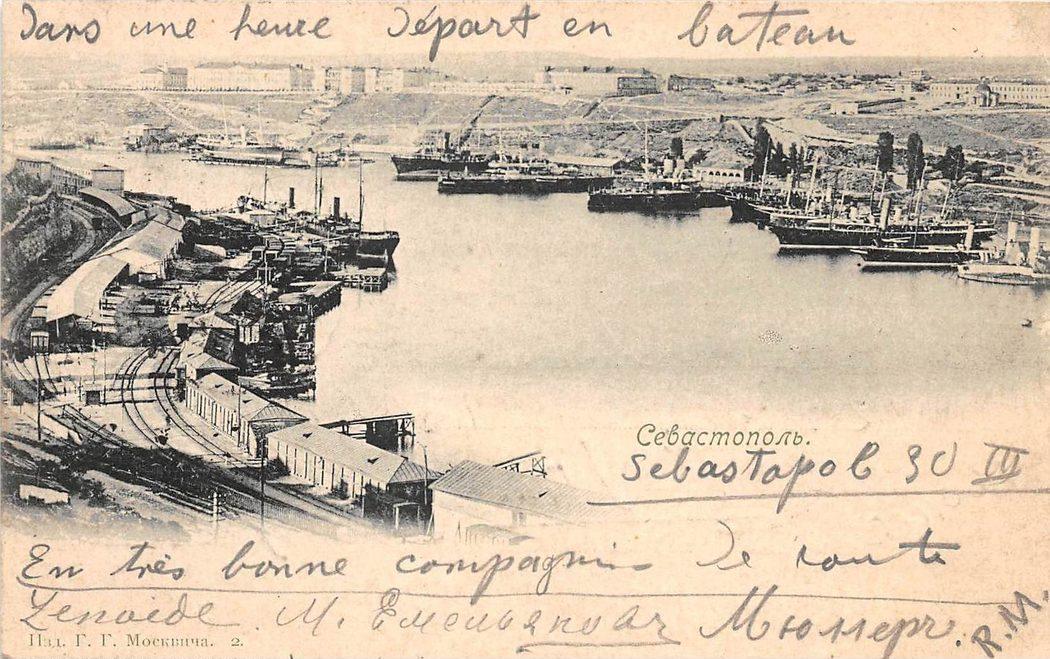 Dans une heure Départ en bateau
Севастополь.
Sebastopol 30 III
En très bonne compagnie de route
Zenoïde. М. Емельяновъ Мюллеръ.
R.M.
Изд. Г. Г. Москвича. 2.